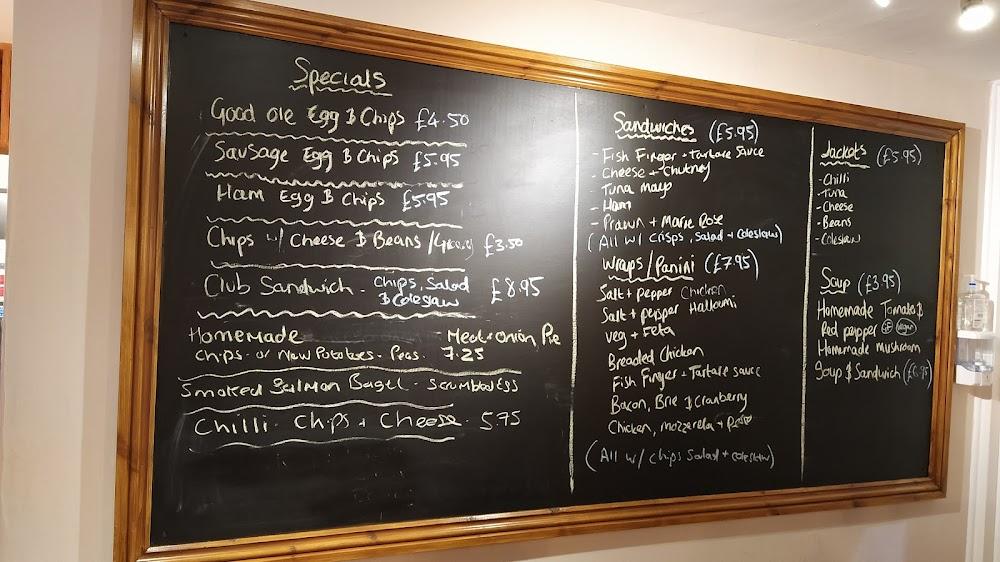 Specials
Good ole Egg & Chips £4.50
Sausage Egg & Chips £5.95
Ham Egg & Chips £5.95
Chips w/ Cheese & Beans / Gravy £3.50
Club Sandwich - Chips, Salad & Coleslaw £8.95
Homemade - Meat + onion Pie
Chips or New Potatoes - Peas. 7.25
Smoked Salmon Bagel - Scrambled Egg
Chilli - Chips + Cheese - 5.75
Sandwiches (£5.95)
- Fish Finger + Tartare Sauce
- Cheese + Chutney
- Tuna mayo
- Ham
- Prawn + Marie Rose
(All w/ Crisps, Salad + Coleslaw)
Wraps / Panini (£7.95)
Salt + pepper Chicken
Salt + pepper Halloumi
Veg + Feta
Breaded Chicken
Fish Finger + Tartare sauce
Bacon, Brie & Cranberry
Chicken, mozzarella + Pesto
(All w/ Chips Salad + coleslaw)
Jackets (£5.95)
- Chilli
- Tuna
- Cheese
- Beans
- Coleslaw
Soup (£3.95)
Homemade Tomato &
Red pepper GF vegan
Homemade mushroom
Soup & Sandwich (£6.95)